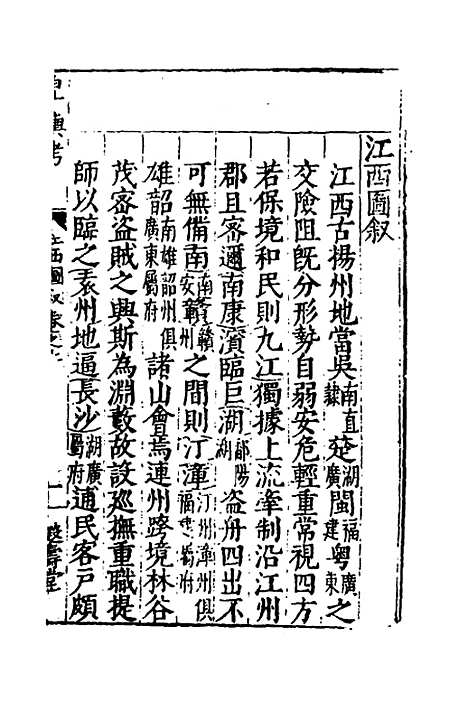 江西圖叙
江西古揚州地當吳南直隸楚湖廣閩福建粤廣東之
交險阻旣分形勢自弱安危輕重常視四方
若保境和民則九江獨據上流牽制沿江州
郡且密邇南康濱臨巨湖鄱陽湖盗舟四出不
可無備南南安贛贛州之間則汀漳汀州漳州俱福建屬府
雄韶南雄韶州俱廣東屬府諸山會焉連州跨境林谷
茂密盗賊之與斯為淵藪故設廵撫重職提
師以臨之袁州地逼長沙湖廣屬府逋民客戸頗
輿考
江西圖叙